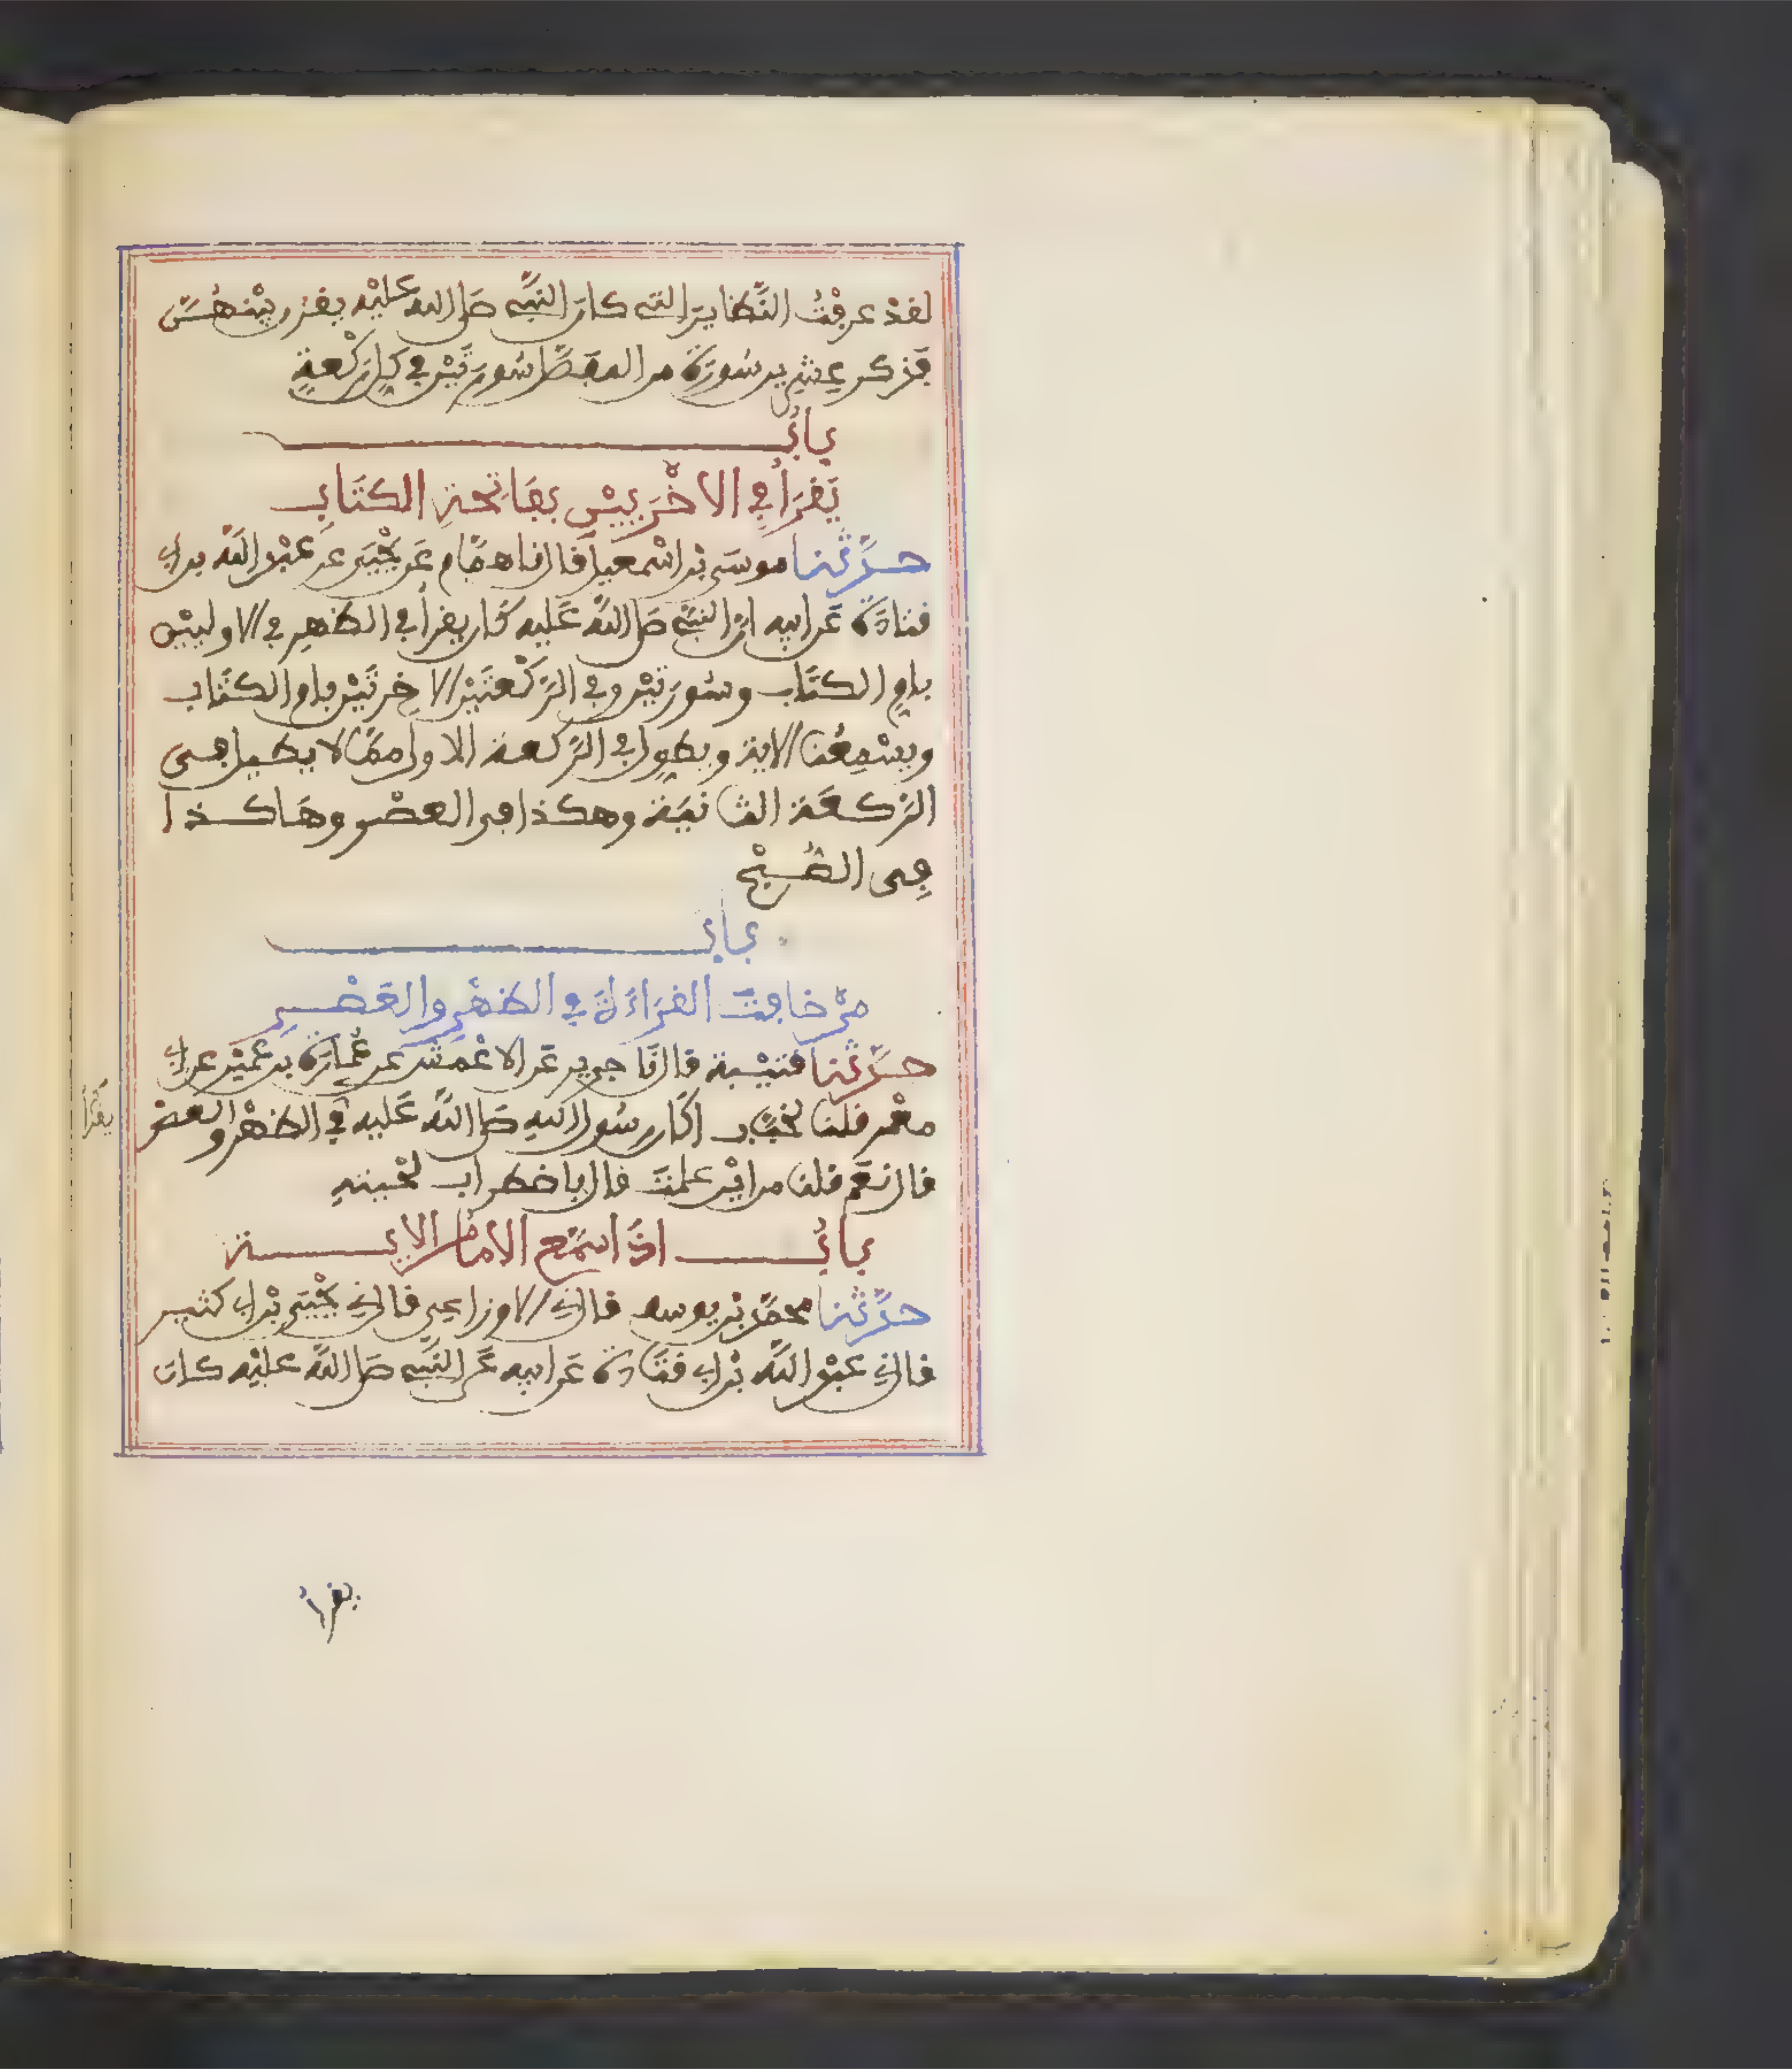 لقد عرفت النَّظاير التي كان النبي صلى الله عليه يقرن بينهنَّ
فذكر عشرين سورة من المفصَّل سورتين في كل ركعة
باب
يَقرَأ في الاخْرَيين بفاتحة الكتاب
حدَّثنا موسى بن اسمعيل قال نا همَّام عن يحيى عن عبد الله بن ابي
قتادة عن ابيه ان النبي صلى الله عليه كان يقرأ في الظهر في الاوليين
بام الكتاب وسورتين وفي الركعتين الاخرتين بام الكتاب
ويسمعنا الاية ويطول في الركعة الاولى ممَّا لا يطيل في
الركعة الثانية وهكذا في العصر وهاكذا
في الصُّبح
باب
من خافت القراءة في الظهر والعصر
حدَّثنا قتيبة قال نا جرير عن الاعمش عن عُمارة بن عمير عن ابي
معمر قلنا لخبَّاب اكان رسول الله صلى الله عليه في الظهر والعصر
يقرأ
قال نعم قلنا من اين علمت قال باضطراب لحيته
باب اذا اسمع الامام الاية
حدَّثنا محمَّد بن يوسف قال ني الاوزاعي قال ني يحيى بن ابي كثير
قال ني عبد الله بن ابي قتادة عن ابيه عن النبي صلى الله عليه كان
يقرأ